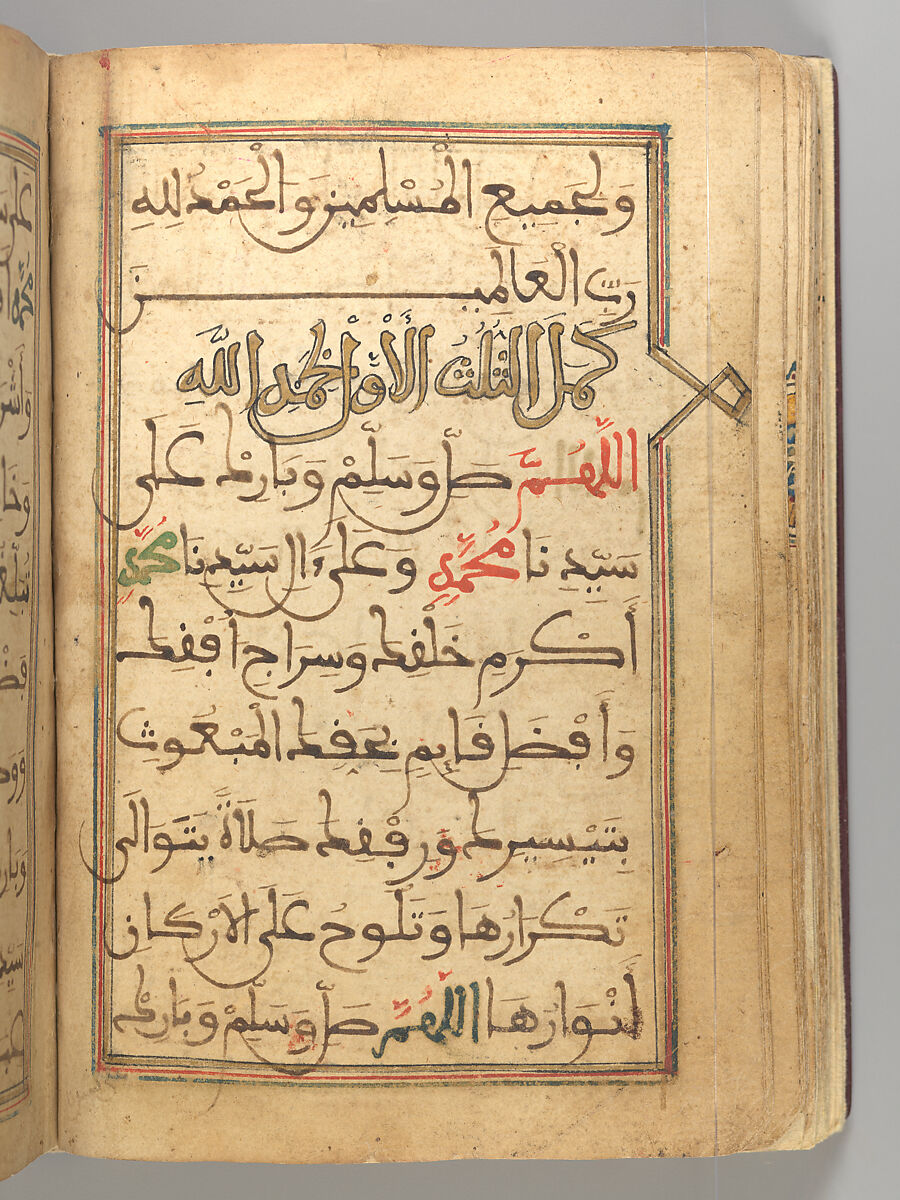 وَلِجَمِيعِ الْمُسْلِمِينَ وَالْحَمْدُ لِلهِ
رَبِّ الْعَالَمِينَ
كَمُلَ الثُّلُثُ الْأَوَّلُ بِحَمْدِ اللَّهِ
اللَّهُمَّ صَلِّ وَسَلِّمْ وَبَارِكْ عَلَى
سَيِّدِنَا مُحَمَّدٍ وَعَلَى ءَالِ سَيِّدِنَا مُحَمَّدٍ
أَكْرَمِ خَلْقِكَ وَسِرَاجِ أُفْقِكَ
وَأَفْضَلِ قَايِمٍ بِحَقِّكَ الْمَبْعُوثِ
بِتَيْسِيرِكَ وَرِفْقِكَ صَلَاةً يَتَوَالَى
تَكْرَارُهَا وَتَلُوحُ عَلَى الَارْكَانِ
أَنْوَارُهَا اللَّهُمَّ صَلِّ وَسَلِّمْ وَبَارِكْ